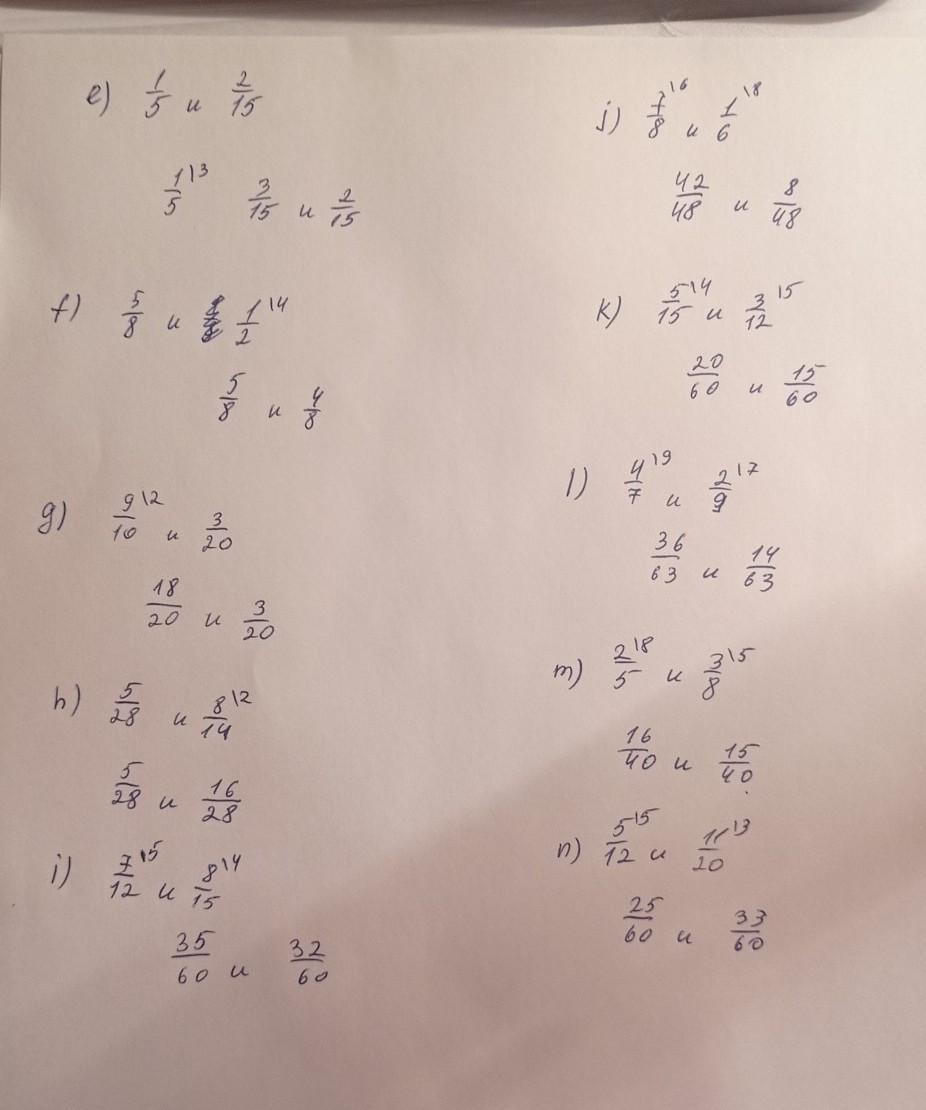 e) 1/5 и 2/15
1/5\3 3/15 и 2/15
f) 5/8 и 1/2\4
5/8 и 4/8
g) 9/10\2 и 3/20
18/20 и 3/20
h) 5/28 и 8/14\2
5/28 и 16/28
i) 7/12\5 и 8/15\4
35/60 и 32/60
j) 7/8\6 и 1/6\8
42/48 и 8/48
k) 5/15\4 и 3/12\5
20/60 и 15/60
l) 4/7\9 и 2/9\7
36/63 и 14/63
m) 2/5\8 и 3/8\5
16/40 и 15/40
n) 5/12\5 и 11/20\3
25/60 и 33/60